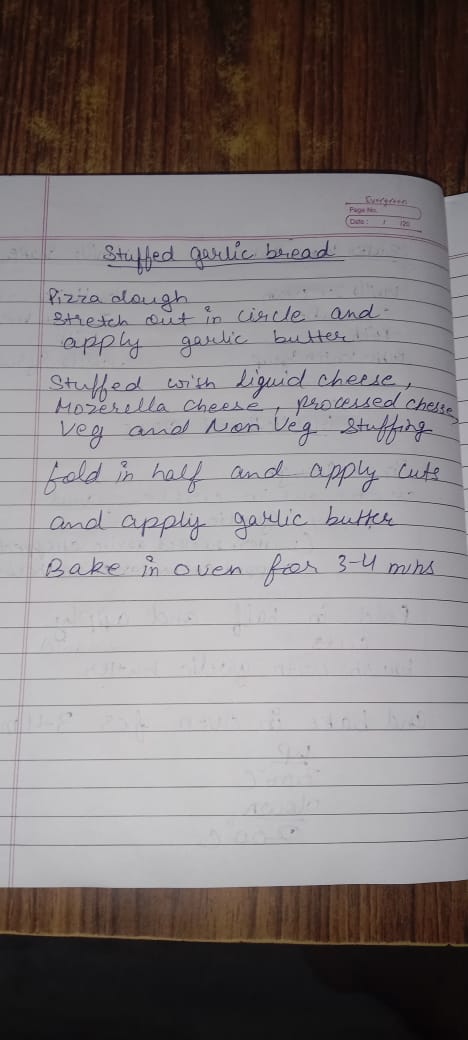 Evergreen
Page No.
Date : / /20
Stuffed garlic bread
Pizza dough
Stretch out in circle and
apply garlic butter
Stuffed with liquid cheese,
Mozerella cheese, processed chesse,
Veg and Non Veg stuffing
fold in half and apply cuts
and apply garlic butter
Bake in oven for 3-4 mins